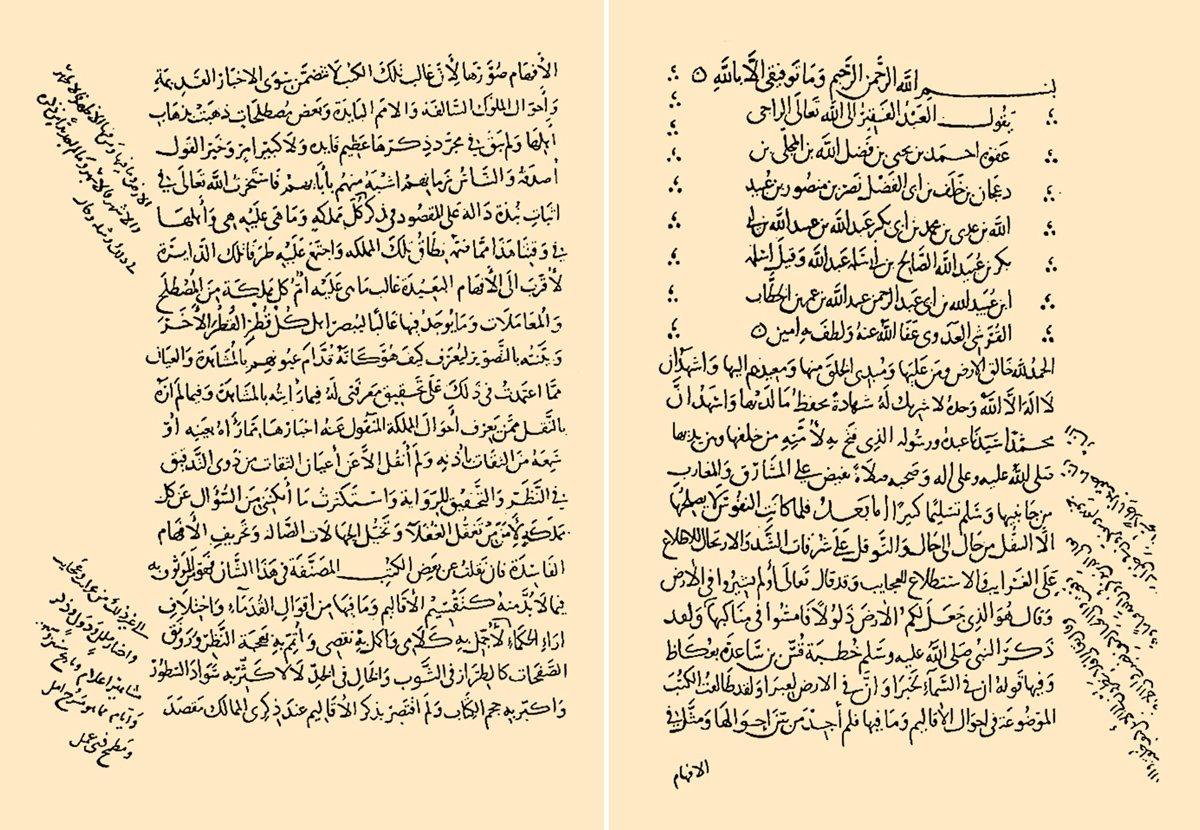 بسم الله الرحمن الرحيم وما توفيقي الا بالله
يقول العبد الفقير الى الله تعالى الراجي
عفوه احمد بن يحيى بن فضل الله بن المجلي بن
دعجان بن خلف بن ابي الفضل نصر بن منصور بن عبيد
الله بن عدي بن محمد بن ابي بكر عبد الله بن عبيد الله بن ابي
بكر بن عبيد الله الصالح بن ابي سلمه عبد الله وقيل ابي سلمه
ابن عبيد الله بن ابي عبد الرحمن عبد الله بن عمر بن الخطاب
القرشي العدوي عفا الله عنه ولطف به امين
الحمد لله خالق الارض ومن عليها ومبدي الخلق منها ومعيدهم اليها واشهد ان
لا اله الا الله وحده لا شريك له شهادة يحفظ ما لديها واشهد ان
محمدا سيدنا عبده ورسوله الذي فتح به لامته من خلفها ومن يديها
صلى الله عليه وعلى اله وصحبه صلاة تفيض على المشارق والمغارب
من جانبيها وسلم تسليما كثيرا اما بعد فلما كانت النفوس لا يصلحها
الا التنقل من حال الى حال والتوقل على شرفات الشد والارتحال للاطلاع
على الغرايب والاستطلاع للعجايب وقد قال تعالى اولم يسيروا في الارض
وقال هو الذي جعل لكم الارض ذلولا فامشوا في مناكبها ولقد
ذكر النبي صلى الله عليه وسلم خطبة قس بن ساعدة بعكاظ
وفيها قوله ان في السماء لخبرا وان في الارض لعبرا ولقد طالعت الكتب
الموضوعة في احوال الاقاليم وما فيها فلم أجد من بين احوالها ومثل في
الافهام
الأفهام صورها لأن غالب تلك الكتب لا تتضمن سوى الاخبار القديمة
وأحوال الملوك السالفة والامم البايدة وبعض مصطلحات ذهبت بذهاب
أهلها ولم يبق في مجرد ذكرها عظيم فايدة ولا كبير امر وخير القول
أصدقه والناس بزمانهم اشبه منهم بآبائهم فاستخرت الله تعالى في
اثبات نبذة دالة على المقصود في ذكر كل مملكة وما هي عليه هي وأهلها
في وقتنا هذا مما ضمه نطاق تلك المملكة واجتمع عليه طرفا تلك الدايرة
لأقرب الى الأفهام البعيدة غالب ما هي عليه أم كل مملكة من المصطلح
والمعاملات وما يوجد فيها غالبا ليبصر اهل كل قطر القطر الآخر
وبينته بالتصوير ليعرف كيف هو كأنه قدام عيونهم بالمشاهدة والعيان
مما اعتمدت في ذلك على تحقيق معرفتي له فيما رأيته بالمشاهدة وفيما لم اره
بالنقل ممن يعرف أحوال المملكة المنقول عنه اخبارها مما رآه بعينه أو
سمعه من الثقات بأذنه ولم أنقل إلا عن أعيان الثقات من ذوي التدقيق
في النظر والتحقيق للرواية واستكثرت ما أمكنني من السؤال عن كل
مملكة لأمن من تغفل الغفلاء وتخيل الجهالات الضالة وتحريف الأفهام
الفاسدة فان نقلت عن بعض الكتب المصنفة في هذا الشأن فهو الموثوق به
فيما لا بد منه كتقسيم الأقاليم وما فيها من اقوال القدماء واختلاف
اراء الحكماء لأكمل به كلامي واكمل به نقصي وأتم به بهجة النظر ورونق
الصفحات كالطراز في الثوب والخال في الخد لا لأكثر به سواد السطور
واكبر به حجم الكتاب ولم اقتصر بذكر الأقاليم عند ذكري الممالك مقصد